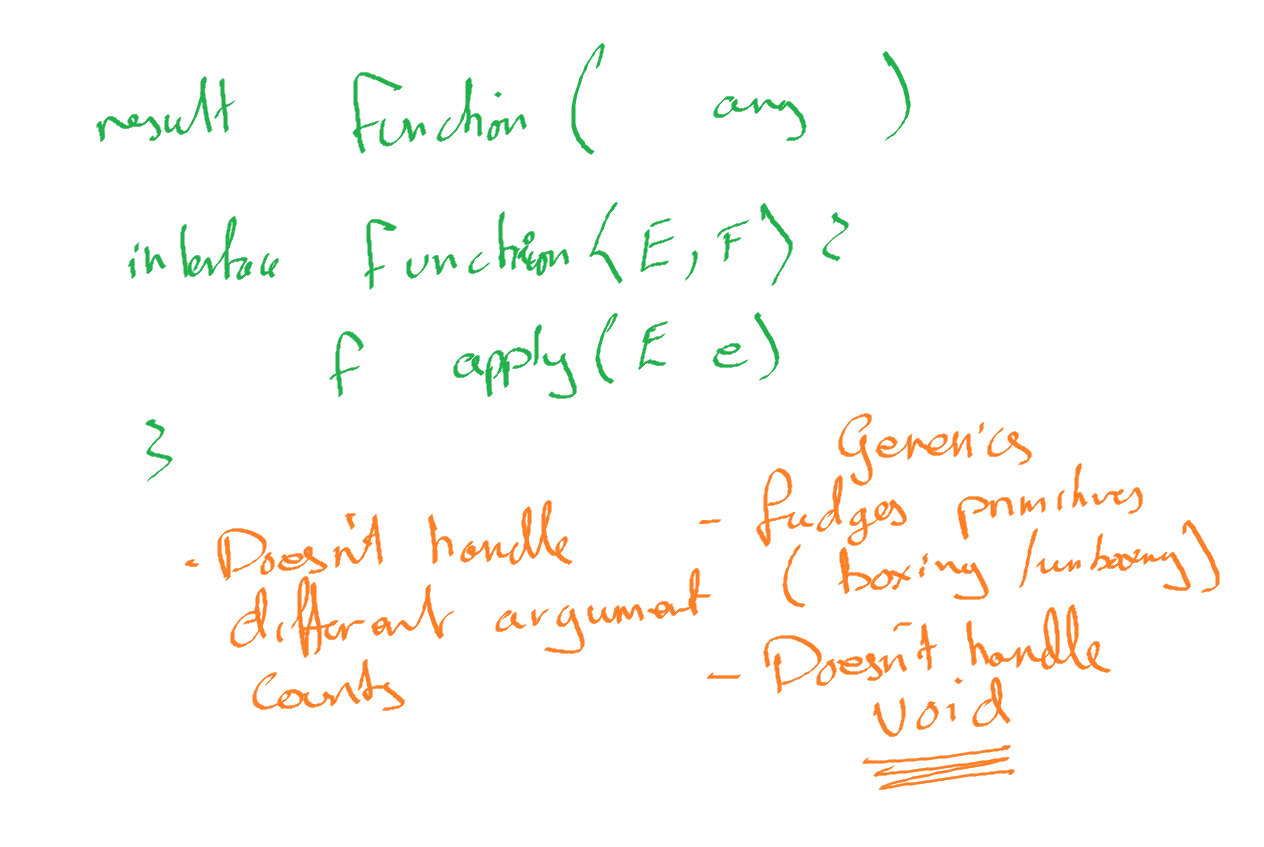 result function( arg )
interface function<E, F> {
f apply(E e)
}
- Doesn't handle
different argument
counts
Generics
- fudges primitives
(boxing/unboxing)
- Doesn't handle
void